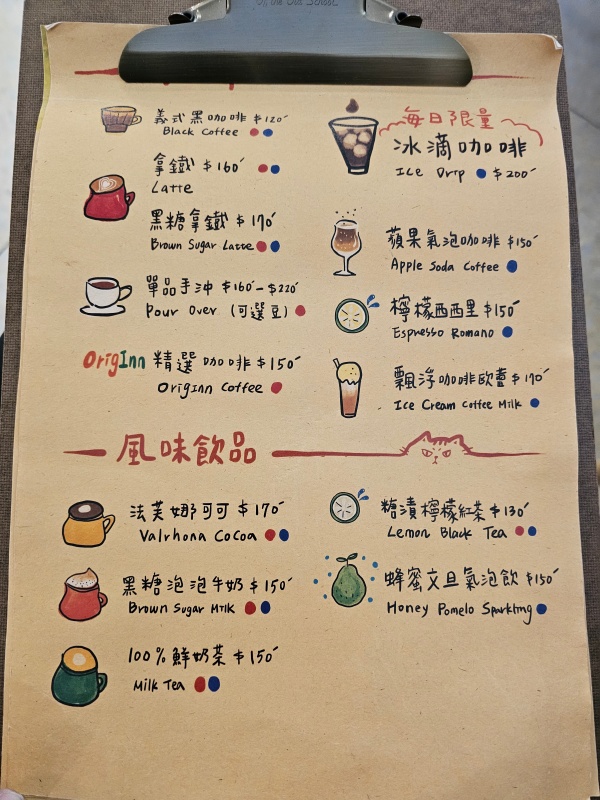 義式黑咖啡 $120
Black Coffee
拿鐵 $160
Latte
黑糖拿鐵 $170
Brown Sugar Latte
單品手沖 $160-$220
Pour Over (可選豆)
OrigInn 精選咖啡 $150
OrigInn Coffee
每日限量
冰滴咖啡
Ice Drip $200
蘋果氣泡咖啡 $150
Apple Soda Coffee
檸檬西西里 $150
Espresso Romano
飄浮咖啡歐蕾 $170
Ice Cream Coffee Milk
風味飲品
法芙娜可可 $170
Valrhona Cocoa
黑糖泡泡牛奶 $150
Brown Sugar Milk
100%鮮奶茶 $150
Milk Tea
糖漬檸檬紅茶 $130
Lemon Black Tea
蜂蜜文旦氣泡飲 $150
Honey Pomelo Sparkling